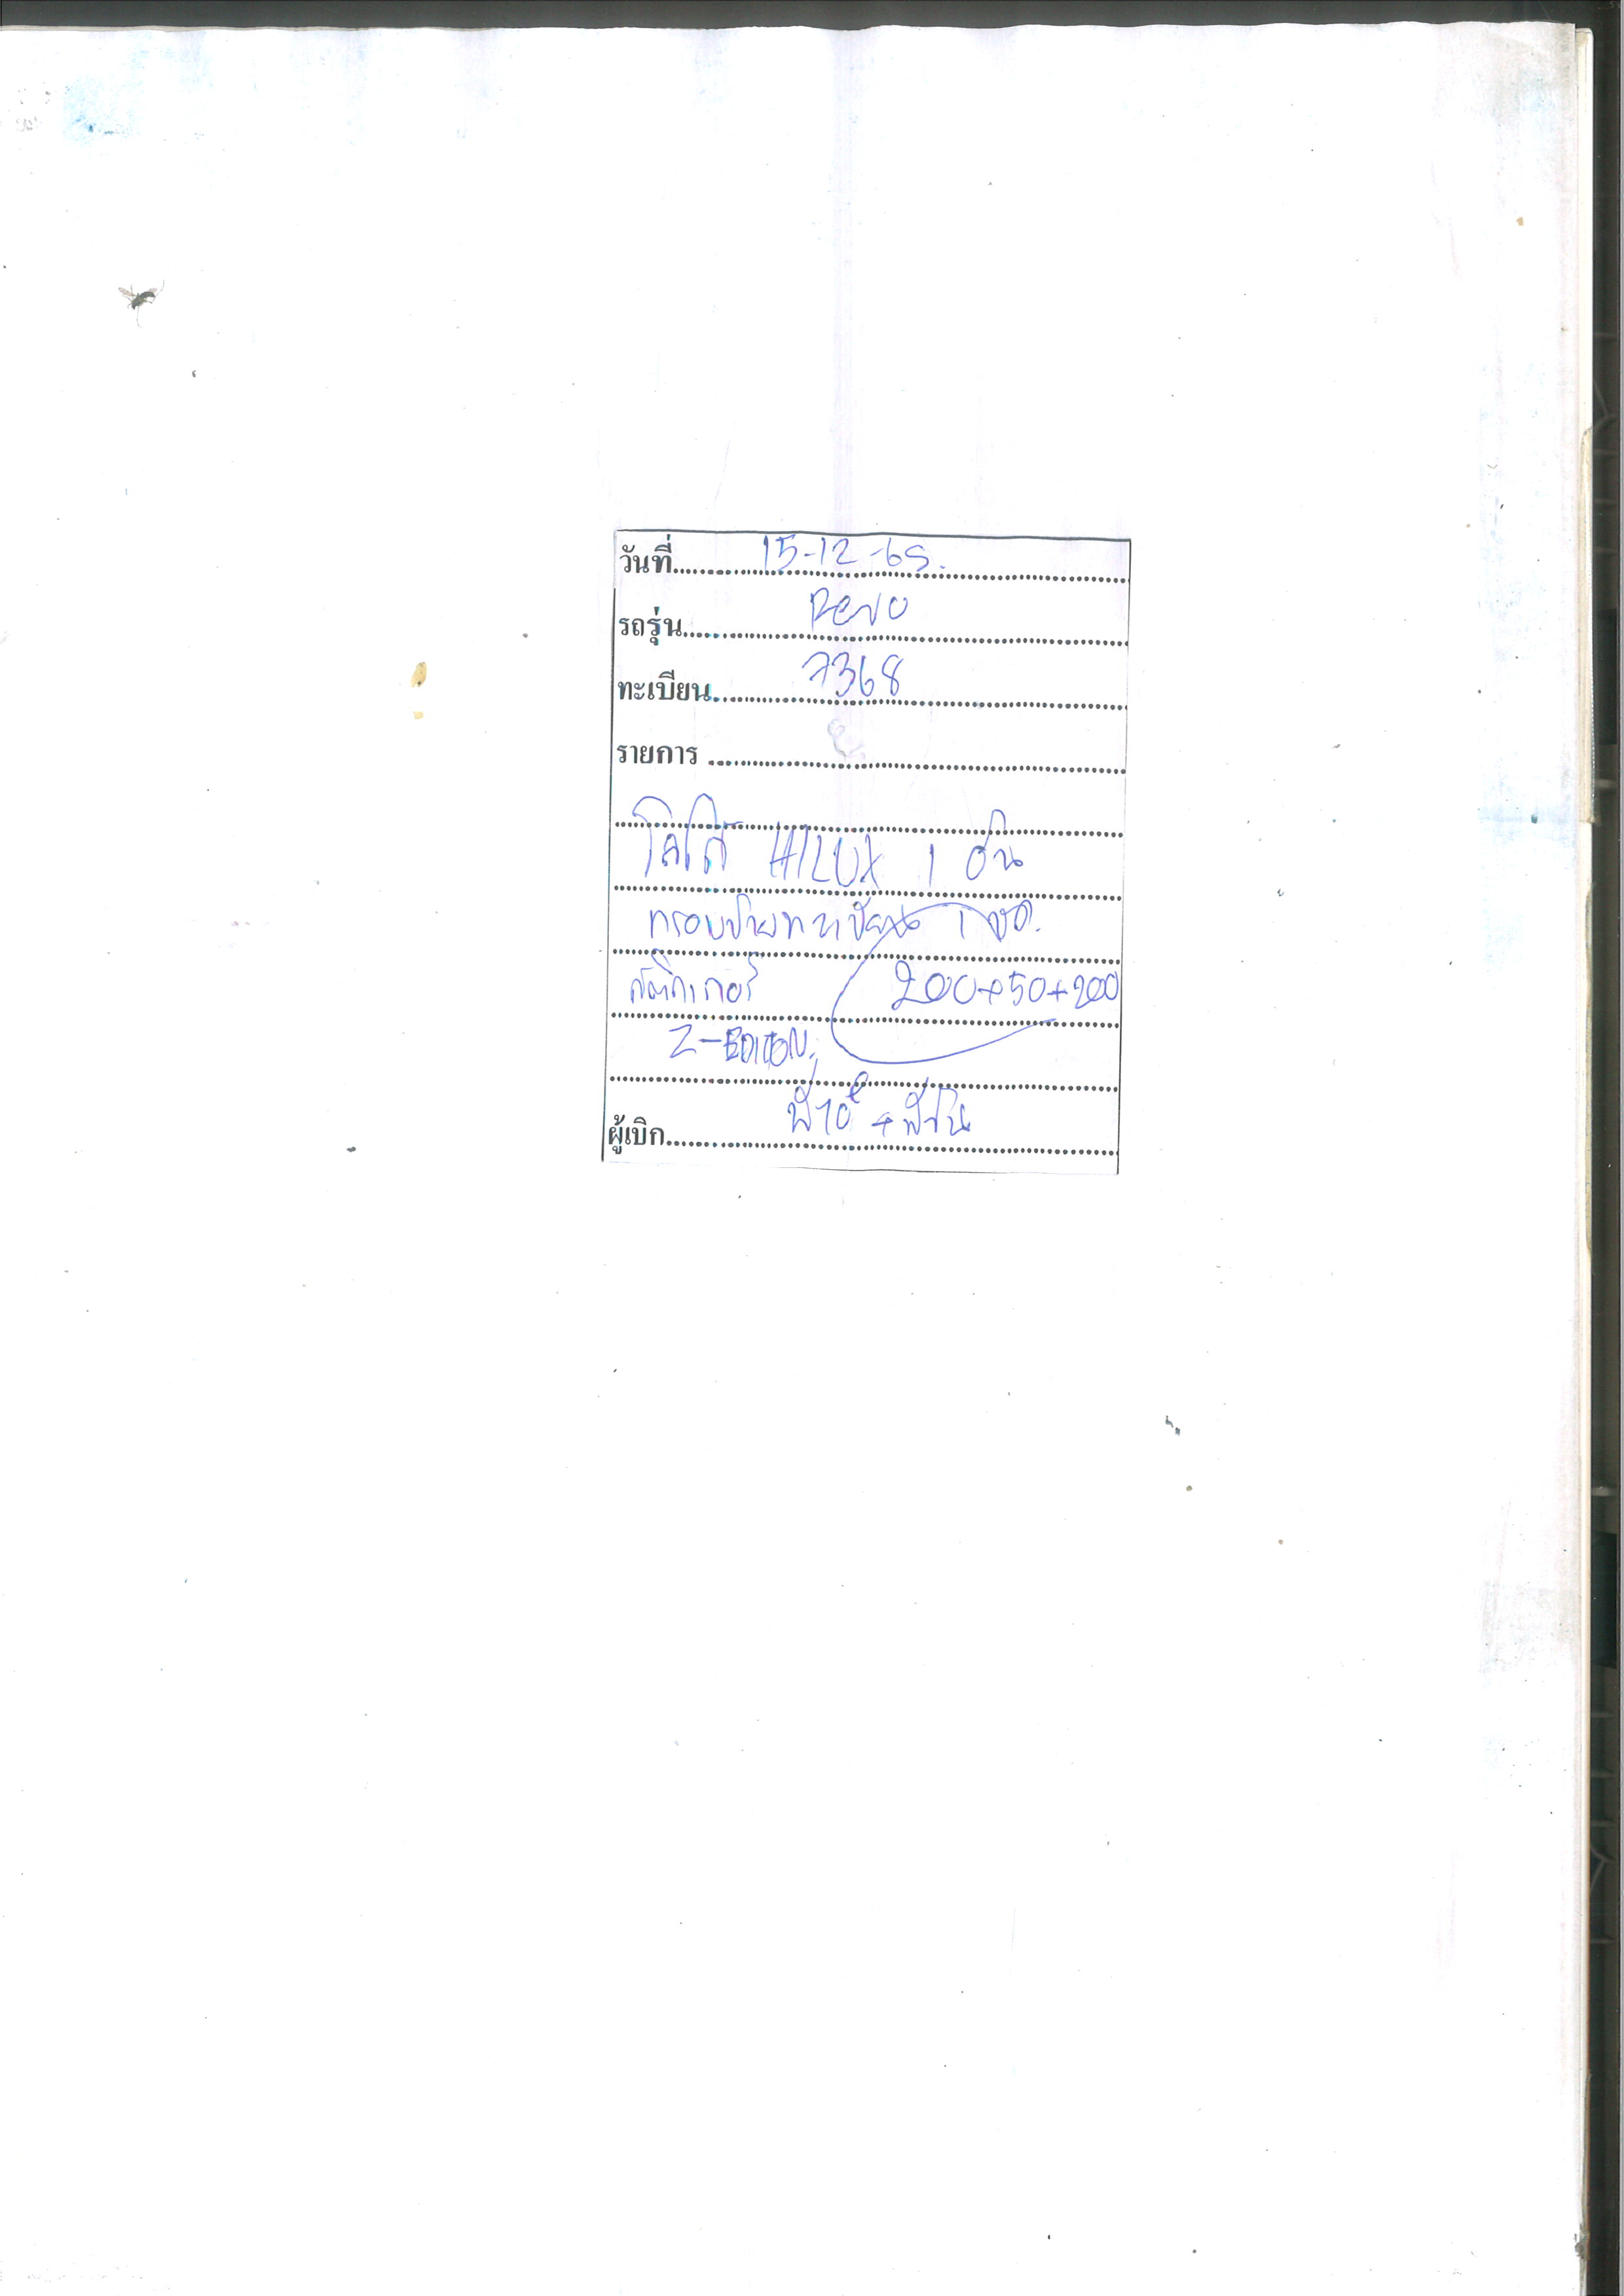 วันที่ 15-12-65.
รถรุ่น Revo
ทะเบียน 7368
รายการ
โลโก้ HILUX 1 อัน
กรอบป้ายทะเบียน 1 ชุด.
สติกเกอร์ 200+50+200
Z-EDITON.
ผู้เบิก